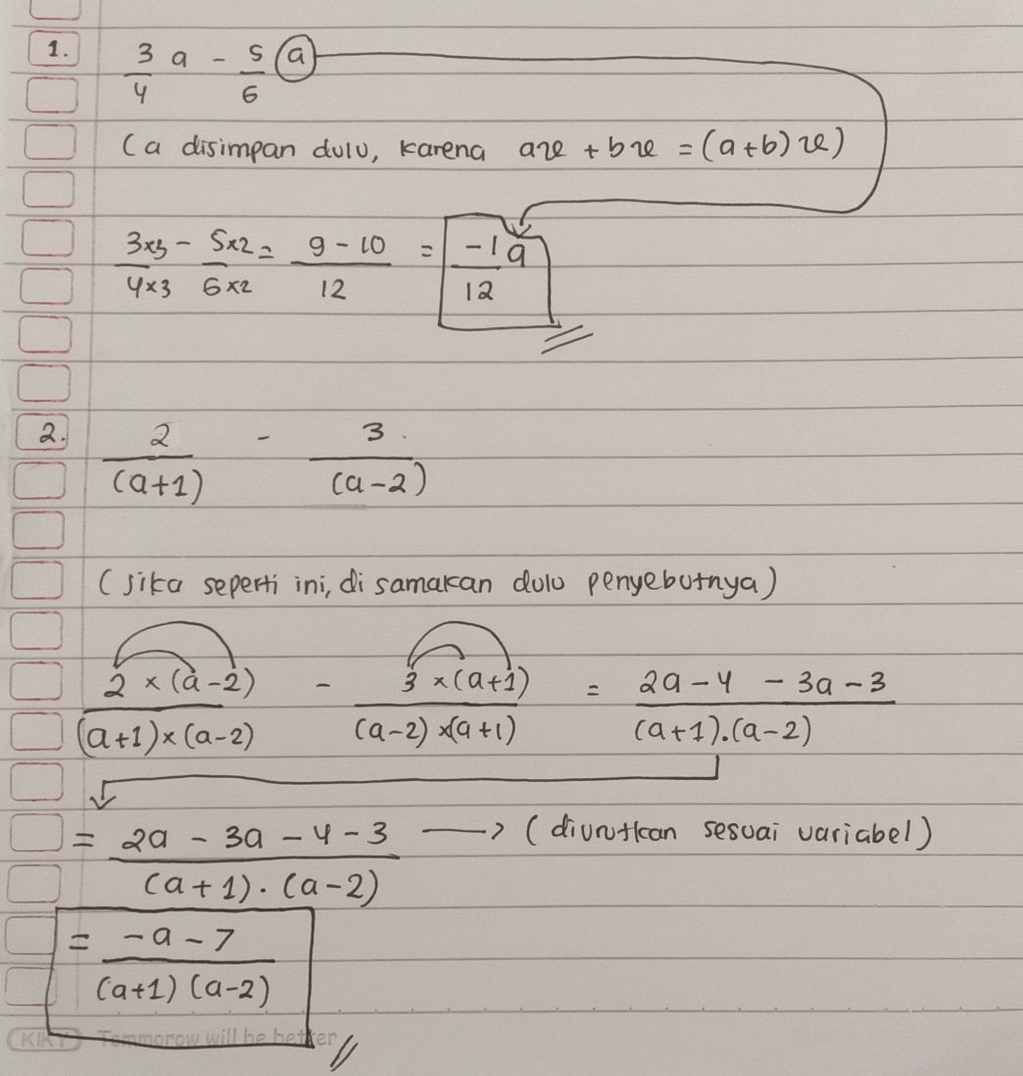 1. 3/4 a - 5/6 a
(a disimpan dulu, karena ax + bx = (a+b)x)
3x3/4x3 - 5x2/6x2 = 9-10/12 = -1/12 a
2. 2/(a+1) - 3/(a-2)
(Jika seperti ini, di samakan dulu penyebutnya)
2 x (a-2)/(a+1) x (a-2) - 3 x (a+1)/(a-2) x (a+1) = 2a-4 - 3a-3/(a+1).(a-2)
= 2a - 3a - 4 - 3/(a+1) . (a-2) → (diurutkan sesuai variabel)
= -a-7/(a+1) (a-2)
KIKY Tommorow will be better